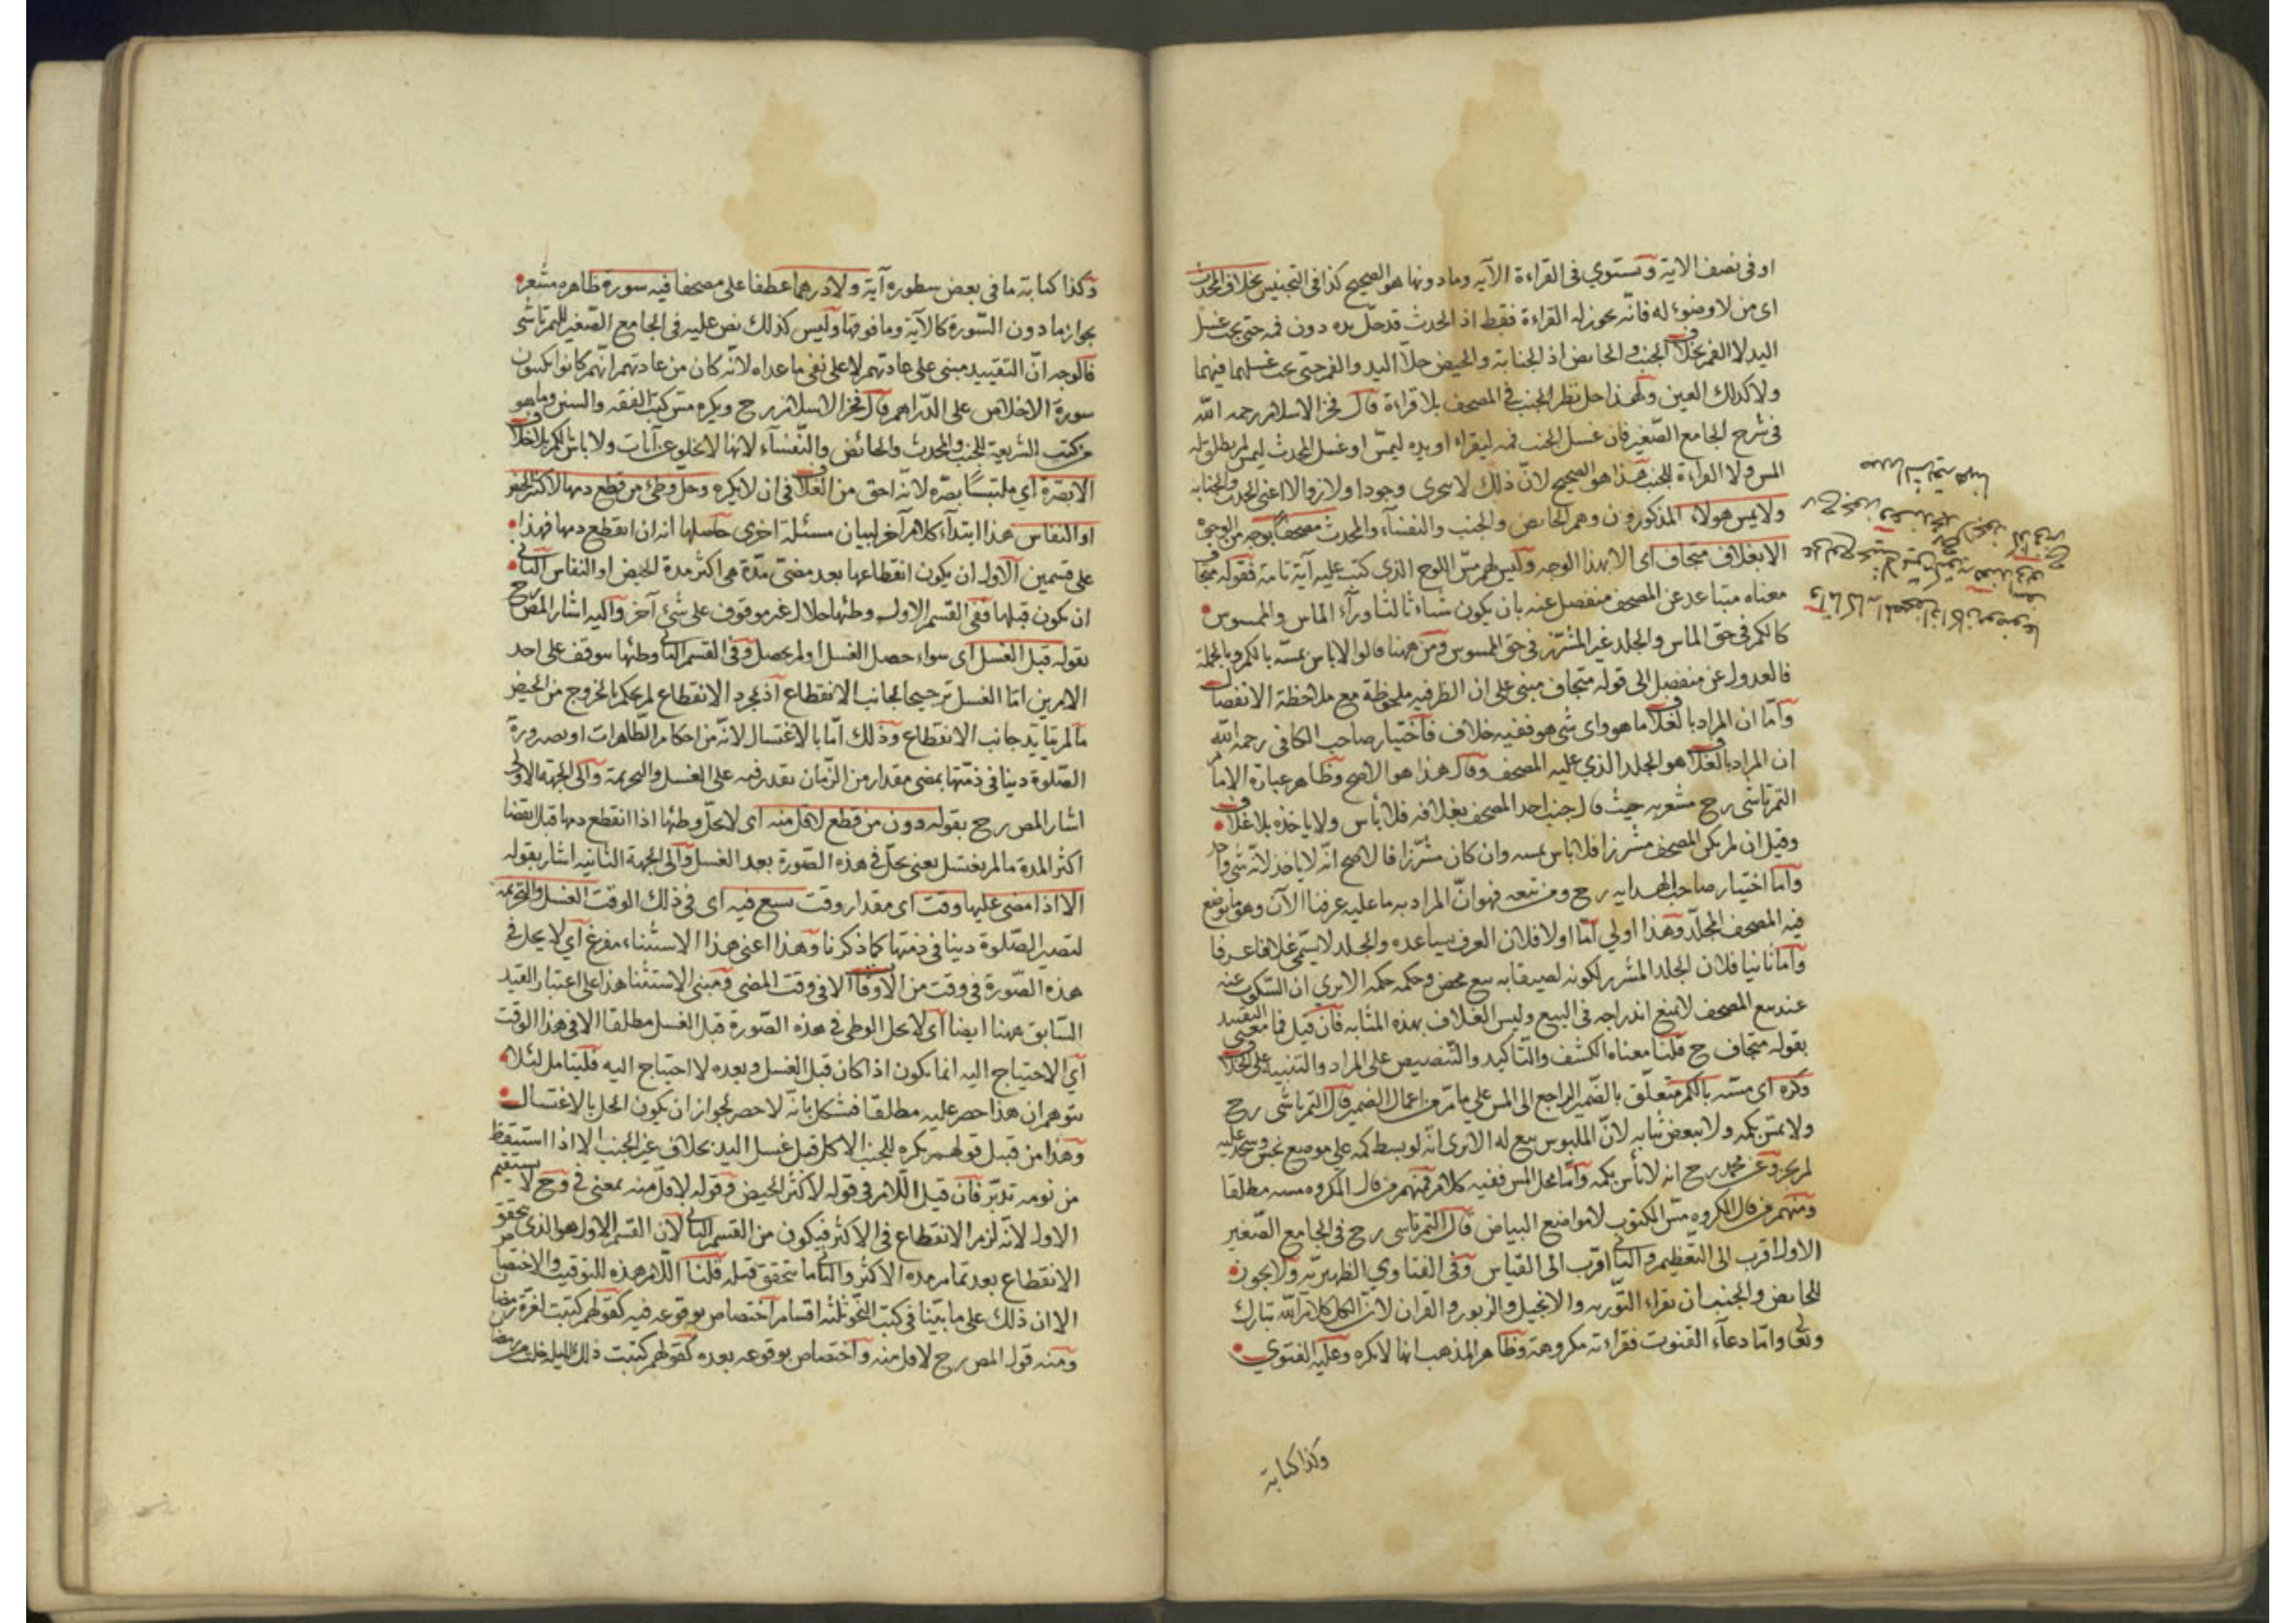 او فى نصف الاية وتستوي فى القراءة الآيه ومادونها هو الصحيح كذا فى التجنيس بخلاف المحدث
اى من لا وضوء له فانّه يجوز له القراءة فقط اذ الحدث قد حلّ يده دون فمه حتى يجب غسل
اليد لا الفم بخلاف الجنب والحايض اذ الجنابة والحيض حلّا اليد والفم حتى يجب غسلهما فيهما
ولا كذلك العين ولهذا حل نظر الجنب فى المصحف بلا قراءة قال فخر الاسلام رحمه الله
فى شرح الجامع الصّغير فان غسل الجنب فمه ليقراء او يده ليمسّ او غسل المحدث ليمس لم يطلق له
المس ولا القراءة للجنب هذا هو الصحيح لانّ ذلك لا يتجزى وجودا ولا زوالا اعنى الحدث والجنابة
ولا يمس هولاء المذكورون وهم الحايض والجنب والنفسآء والمحدث مصحفا بوجه من الوجوه
الا بغلاف متجاف اى الا بهذا الوجه وليس لهم مسّ اللوح الذى كتب عليه آية تامة فقوله متجاف
معناه متباعد عن المصحف منفصل عنه بان يكون شياء ثالثا ورآء الماس والممسوس
كالكم فى حق الماس والجلد غير المشرّز فى حق الممسوس ومن ههنا قالوا لا باس بمسّه بالكم وبالجملة
فالعدول عن منفصل الى قوله متجاف مبنى على ان الظرفيه ملحوظة مع ملاحظة الانفصال
وامّا ان المراد بالغلاف ما هو واى شى هو ففيه خلاف فاختيار صاحب الكافى رحمه الله
ان المراد بالغلاف هو الجلد الذي عليه المصحف وقال هذا هو الاصح وظاهر عبارة الامام
التمرتاشى رح مشعر به حيث قال جنب اخذ المصحف بغلافه فلا بأس ولا ياخذه بلا غلاف
وقيل ان لم يكن المصحف مشرزا فلا باس بمسه وان كان مشرّزا فالاصح انّه لا ياخذ لانّه شى واحد
وامّا اختيار صاحب الهدايه رح ومن تبعه فهو انّ المراد به ما عليه عرفنا الآن وهو ما يوضع
فيه المصحف المجلّد وهذا اولي امّا اولا فلان العرف يساعده والجلد لا يسمّى غلافا عرفا
وامّا ثانيا فلان الجلد المشرز لكونه لصيقا به تبع محض وحكمه حكمه الا يري ان السّكوت عنه
عند بيع المصحف لا يمنع اندراجه فى البيع وليس الغلاف بهذه المثابه فان قيل فما معنى التقييد
بقوله متجاف ح قلنا معناه الكشف والتّاكيد والتّنصيص على المراد والتنبيه على الخلاف
وكره اى مسّه بالكم متعلّق بالضّمير الراجع الى المس على ما مرّ من اعمال الضمير قال التمرتاشى رح
ولا يمسّ بكمّه ولا ببعض ثيابه لانّ الملبوس تبع له الا يرى انّه لو بسط كمه على موضع نجس وسجد عليه
لم يجز وعن محمد رح انه لا بأس بكمّه وامّا محل المس ففيه كلام فمنهم من قال المكروه مسه مطلقا
ومنهم من قال المكروه مسّ المكتوب لا مواضع البياض قال التمرتاسى رح فى الجامع الصّغير
الاول اقرب الى التعظيم والثانى اقرب الى القياس وفى الفتاوي الظهيريّه ولا يجوز
للحايض والجنب ان يقراء التّوريه والانجيل والزبور والقران لانّ الكل كلام الله تبارك
وتعالى وامّا دعآء القنوت فقراءته مكروهة وظاهر المذهب انها لا يكره وعليه الفتوي
وكذا كتابة
وكذا كتابة ما فى بعض سطوره آية ولا درهما عطفا على مصحفا فيه سورة ظاهره مشعر
بجواز مادون السّورة كالآية وما فوقها وليس كذلك نص عليه فى الجامع الصّغير للتمرتاشى
فالوجه انّ التقييد مبنى على عادتهم لا على نفى ما عداه لانّه كان من عادتهم انّهم كانوا يكتبون
سورة الاخلاص على الدّراهم قال فخر الاسلام رح ويكره مس كتب الفقه والسنن وما هو
من كتب الشريعة للجنب والمحدث والحائض والنّفسآء لانها لا يخلو عن آيات ولا باس بالكم بلا خلاف
الا بصّرة اي ملتبسًا بصرّه لانّه احق من الغلاف فى ان لا يكره وحل وطئ من قطع دمها لاكثر الحيض
او النفاس هذا ابتدآء كلام آخر لبيان مسئلة اخرى حاصلها انه ان انقطع دمها فهذا
على قسمين الاول ان يكون انقطاعها بعد مضىّ مدّة هى اكثر مدة الحيض او النفاس الثانى
ان يكون قبلها ففى القسم الاول وطئها حلال غير موقوف على شئ آخر واليه اشار المص رح
بقوله قبل الغسل اى سواء حصل الغسل او لم يحصل وفى القسم الثانى وطئها موقف على احد
الامرين امّا الغسل ترجيحا لجانب الانقطاع اذ مجرد الانقطاع لم يحكم بالخروج من الحيض
ما لم يتايّد جانب الانقطاع وذلك امّا بالاغتسال لانّه من احكام الطّاهرات او بصيرورة
الصّلوة دينا فى ذمّتها بمضى مقدار من الزّمان يقدر فيه على الغسل والتحريمة والى الجهة الاولى
اشار المص رح بقوله دون من قطع لاقل منه اى لا يحلّ وطئها اذا انقطع دمها قبل انقضا
اكثر المدة ما لم يغتسل يعنى يحلّ فى هذه الصّورة بعد الغسل والى الجهة الثانيه اشار بقوله
الا اذا مضى عليها وقت اى مقدار وقت يسع فيه اى فى ذلك الوقت الغسل والتحريمه
لتصير الصّلوة دينا فى ذمّتها كما ذكرنا وهذا اعنى هذا الاستثناء مفرغ اي لا يحل فى
هذه الصّورة فى وقت من الاوقات الا فى وقت المضى ومبنى الاستثنا هذا على اعتبار القيد
السّابق ههنا ايضا اى لا يحل الوطى فى هذه الصّورة قبل الغسل مطلقا الا فى هذا الوقت
اي الاحتياج اليه انما يكون اذا كان قبل الغسل وبعده لا احتياج اليه فليتامل لئلا
يتوهم ان هذا حصر عليه مطلقا فشكل بانّه لا حصر لجواز ان يكون الحل بالاغتسال
وهذا من قبيل قولهم يكره للجنب الاكل قبل غسل اليد بخلاف غير الجنب الا اذا استيقظ
من نومه تدبّر فان قيل اللّام فى قوله لاكثر الحيض وقوله لاقلّ منه بمعنى فى وح لا يستقيم
الاول لانّه لزم الانقطاع فى الاكثر فيكون من القسم الثانى لان القسم الاول هو الذى يتحقق
الانقطاع بعد تمام مده الاكثر والثانى ما يتحقق قبله قلنا اللّام هذه للتوقيت والاختصاص
الا ان ذلك على ما بيّنا فى كتب النّحو ثلثه اقسام اختصاص بوقوعه فيه كقولهم كتبت لغرّة رمضان
ومنه قول المص رح لاقل منه واختصاص بوقوعه بعده كقولهم كتبت